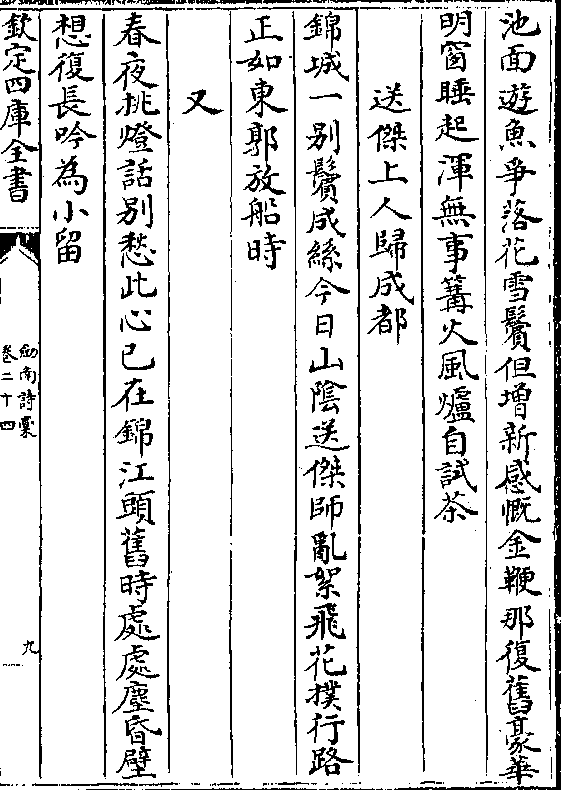 池面遊魚爭落花雪鬢但增新感慨金鞭那復舊豪華
明窗睡起渾無事篝火風爐自試茶
送傑上人歸成都
錦城一别鬢成絲今日山隂送傑師亂絮飛花撲行路
正如東郭放船時
又
春夜挑燈話别愁此心已在錦江頭舊時處處塵昏壁
想復長吟為小留
欽定四庫全書
劍南詩稾
卷二十四
九